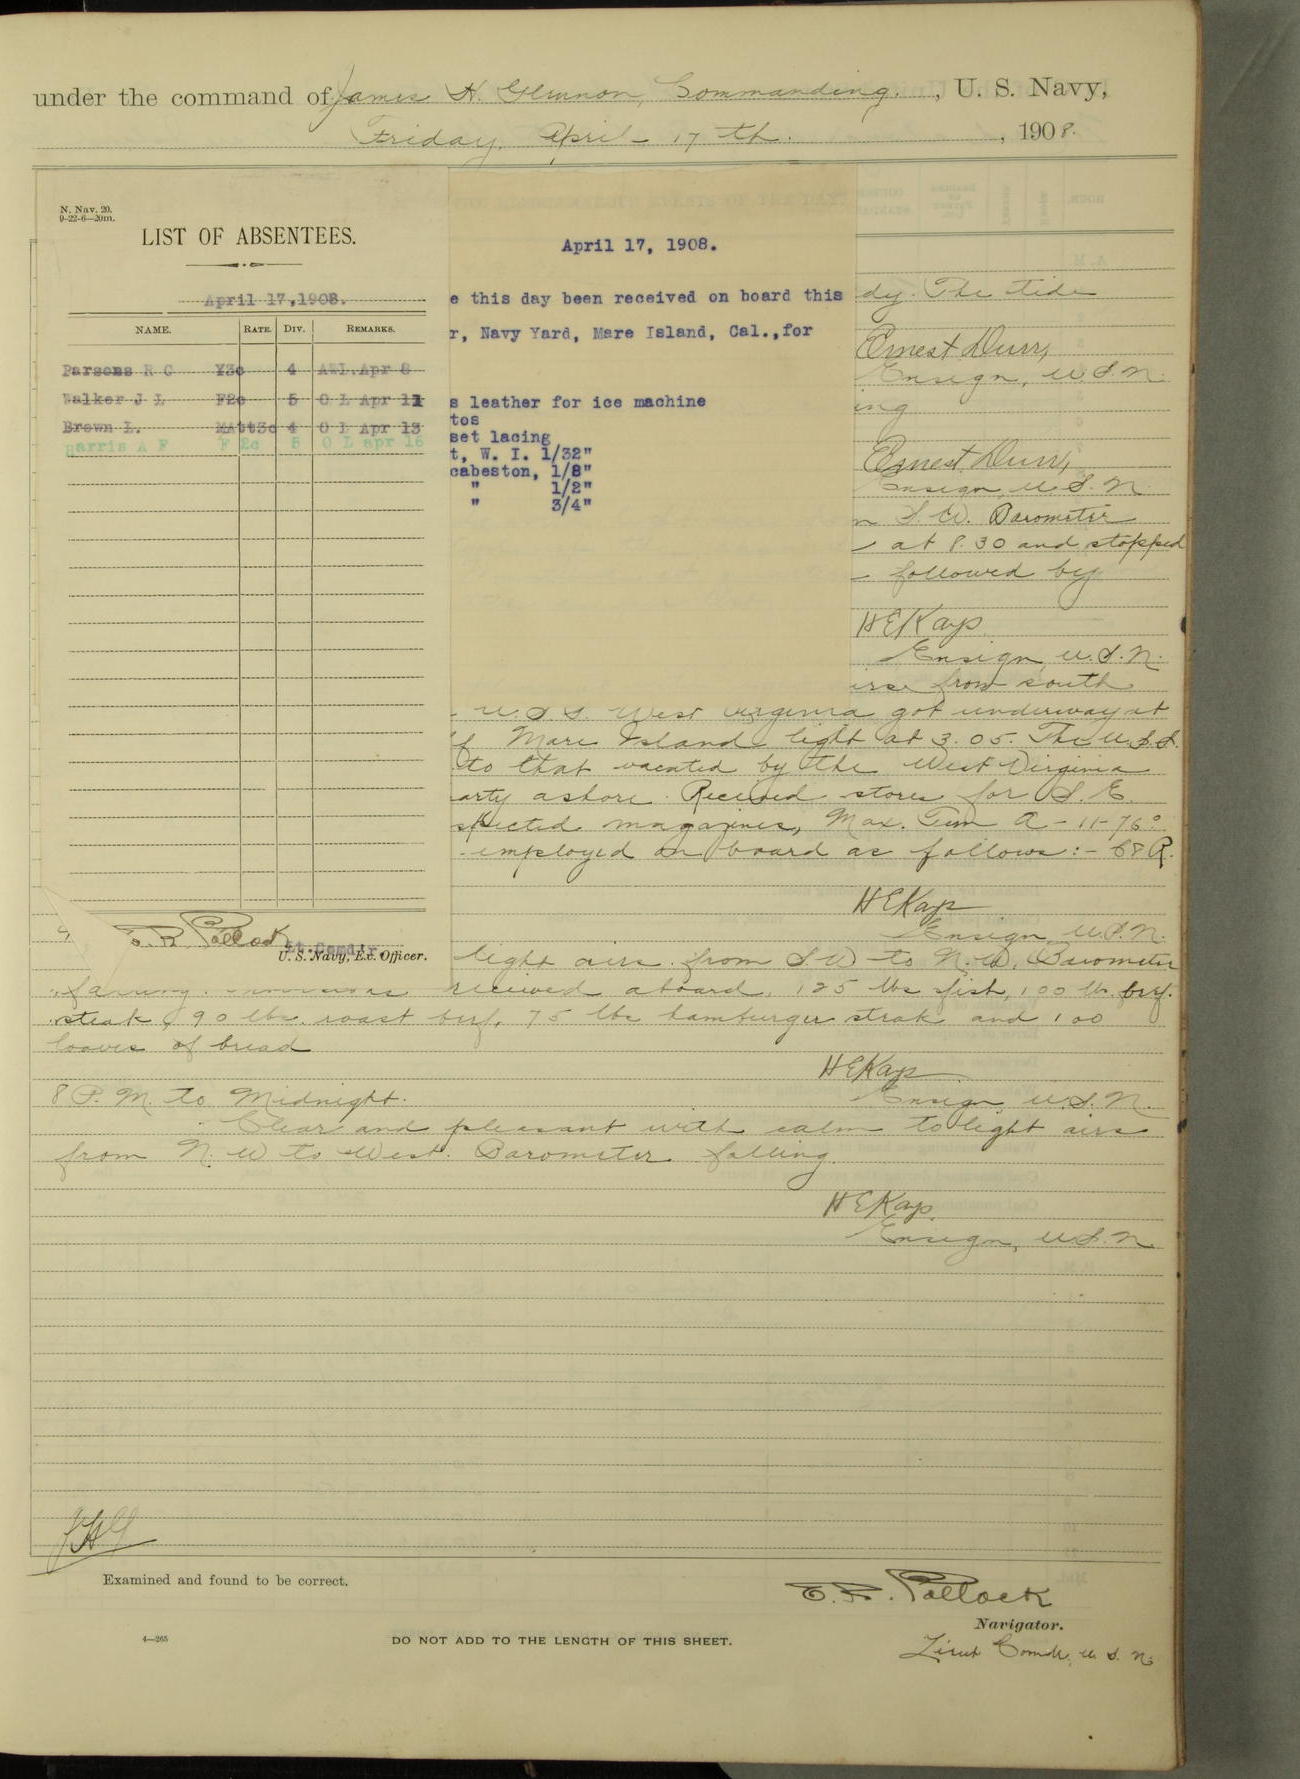 under the command of James H. Glennon, Commanding. , U. S. Navy,
Friday, April 17 th. , 1908.
N. Nav. 20.
9-22-6—20m.
LIST OF ABSENTEES.
April 17,1908.
NAME. RATE. DIV. REMARKS.
Parsons R C Y3c 4 AWL.Apr 8
Walker J L F2c 5 O L Apr 11
Brown L. MAtt3c 4 O L Apr 13
Harris A F F 2c 5 O L apr 16
E. R. Pollock
Lt.Comdr.
U. S. Navy, Ex. Officer.
April 17, 1908.
e this day been received on board this
r, Navy Yard, Mare Island, Cal.,for
s leather for ice machine
tos
set lacing
t, W. I. 1/32"
cabeston, 1/8"
" 1/2"
" 3/4"
dy. The tide
Ernest Durr,
Ensign, U.S.N.
ing
Ernest Durr,
Ensign, U.S.N.
n S.W. Barometer
at 8.30 and stopped
followed by
H E Kays
Ensign, U.S.N.
from south
U.S.S. West Virginia got underway at
f Mare Island light at 3.05. The U.S.S.
to that vacated by the West Virginia
arty ashore. Received stores for S. E.
spected magazines, Max. Tem A-11-76°
employed on board as follows:- 68 R.
H E Kays
Ensign U.S.N.
light airs from S.W to N.W. Barometer
received aboard, 125 lbs fish, 100 lbs beef
steak, 90 lbs. roast beef, 75 lbs hamburger steak and 100
loaves of bread
H E Kays
Ensign, U.S.N.
8 P.M. to Midnight.
Clear and pleasant with calm to light airs
from N.W to West. Barometer falling.
H E Kays.
Ensign, U.S.N.
JHG
Examined and found to be correct.
E. R. Pollock
Navigator.
Lieut Comdr. U.S.N.
4—265
DO NOT ADD TO THE LENGTH OF THIS SHEET.